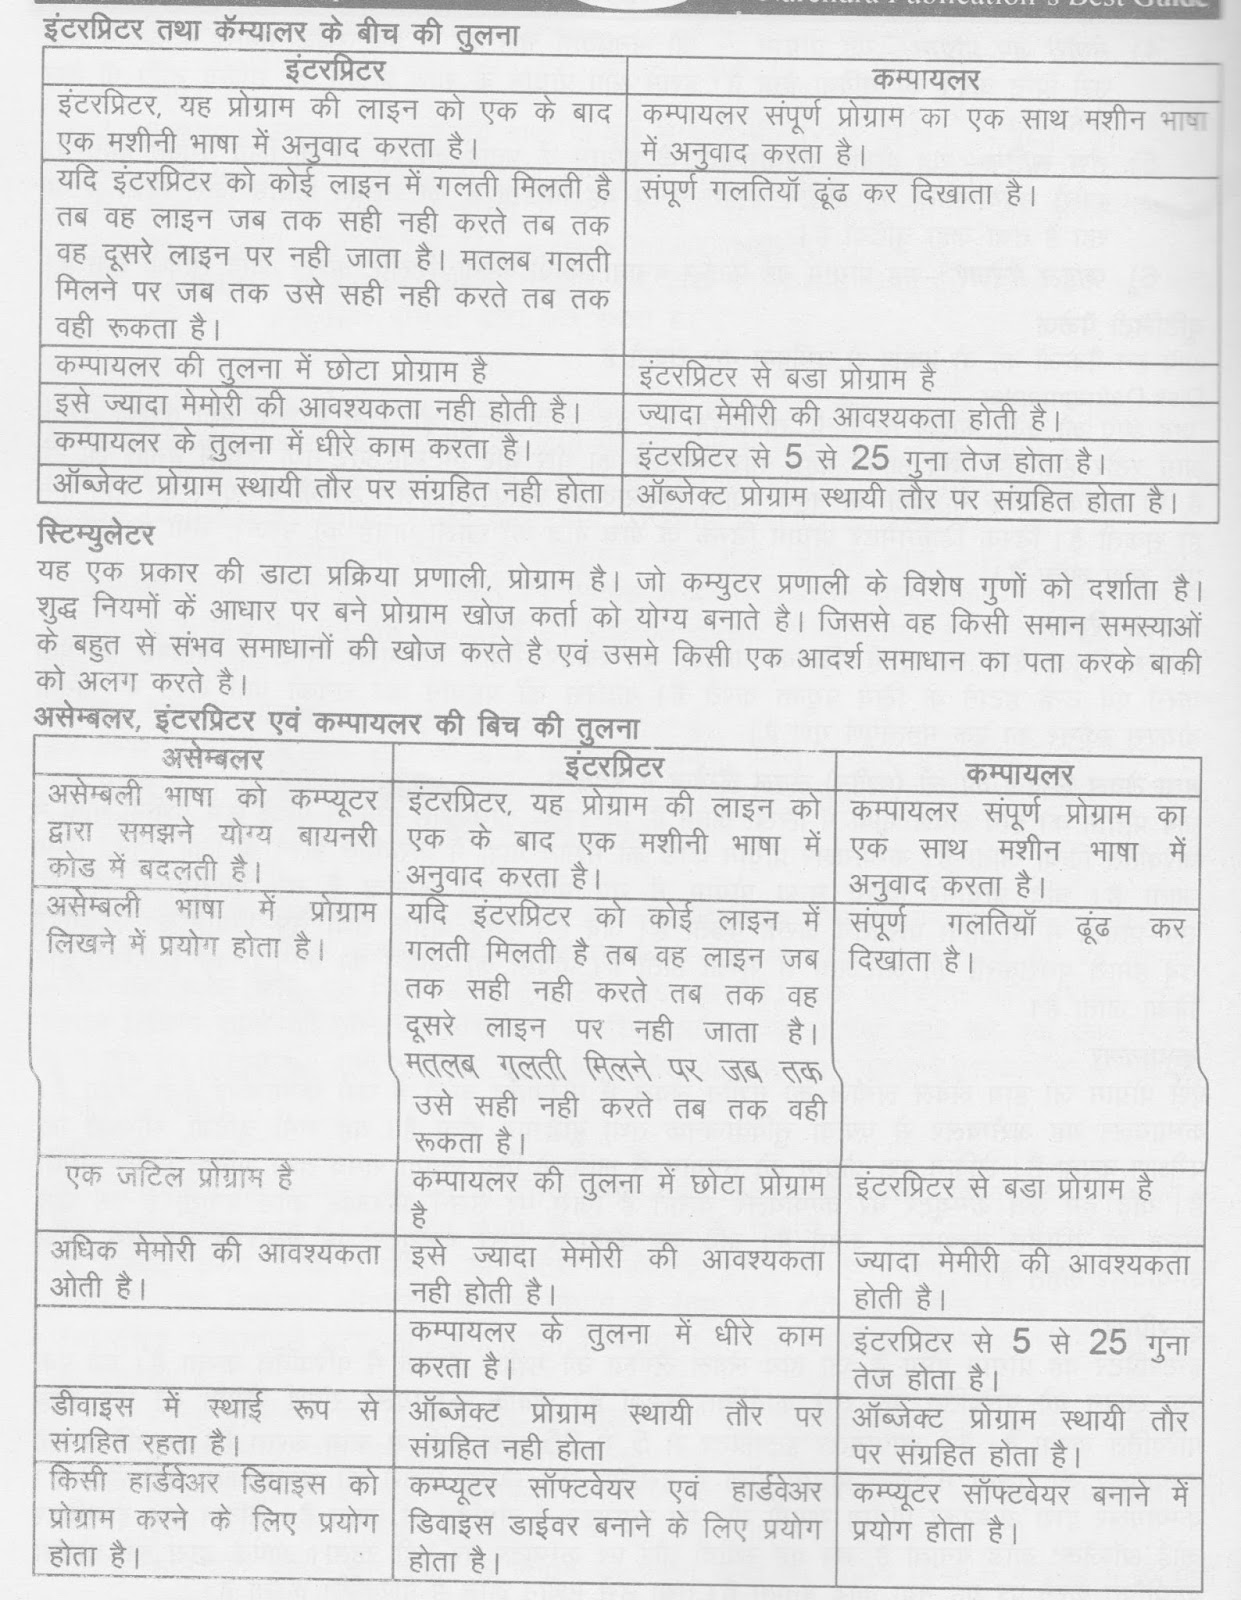 Publication's Best Guide
इंटरप्रिटर तथा कॅम्यालर के बीच की तुलना
इंटरप्रिटर
कम्पायलर
इंटरप्रिटर, यह प्रोग्राम की लाइन को एक के बाद
एक मशीनी भाषा में अनुवाद करता है।
कम्पायलर संपूर्ण प्रोग्राम का एक साथ मशीन भाषा
में अनुवाद करता है।
यदि इंटरप्रिटर को कोई लाइन में गलती मिलती है
तब वह लाइन जब तक सही नही करते तब तक
वह दूसरे लाइन पर नही जाता है। मतलब गलती
मिलने पर जब तक उसे सही नही करते तब तक
वही रूकता है।
संपूर्ण गलतियॉ ढूंढ कर दिखाता है।
कम्पायलर की तुलना में छोटा प्रोग्राम है
इंटरप्रिटर से बडा प्रोग्राम है
इसे ज्यादा मेमोरी की आवश्यकता नही होती है।
ज्यादा मेमीरी की आवश्यकता होती है।
कम्पायलर के तुलना में धीरे काम करता है।
इंटरप्रिटर से 5 से 25 गुना तेज होता है।
ऑब्जेक्ट प्रोग्राम स्थायी तौर पर संग्रहित नही होता
ऑब्जेक्ट प्रोग्राम स्थायी तौर पर संग्रहित होता है।
स्टिम्युलेटर
यह एक प्रकार की डाटा प्रक्रिया प्रणाली, प्रोग्राम है। जो कम्युटर प्रणाली के विशेष गुणों को दर्शाता है।
शुद्ध नियमों कें आधार पर बने प्रोग्राम खोज कर्ता को योग्य बनाते है। जिससे वह किसी समान समस्याओं
के बहुत से संभव समाधानों की खोज करते है एवं उसमे किसी एक आदर्श समाधान का पता करके बाकी
को अलग करते है।
असेम्बलर, इंटरप्रिटर एवं कम्पायलर की बिच की तुलना
असेम्बलर
इंटरप्रिटर
कम्पायलर
असेम्बली भाषा को कम्प्यूटर
द्वारा समझने योग्य बायनरी
कोड में बदलती है।
इंटरप्रिटर, यह प्रोग्राम की लाइन को
एक के बाद एक मशीनी भाषा में
अनुवाद करता है।
कम्पायलर संपूर्ण प्रोग्राम का
एक साथ मशीन भाषा में
अनुवाद करता है।
असेम्बली भाषा में प्रोग्राम
लिखने में प्रयोग होता है।
यदि इंटरप्रिटर को कोई लाइन में
गलती मिलती है तब वह लाइन जब
तक सही नही करते तब तक वह
दूसरे लाइन पर नही जाता है।
मतलब गलती मिलने पर जब तक
उसे सही नही करते तब तक वही
रूकता है।
संपूर्ण गलतियॉ ढूंढ कर
दिखाता है।
एक जटिल प्रोग्राम है
कम्पायलर की तुलना में छोटा प्रोग्राम
है
इंटरप्रिटर से बडा प्रोग्राम है
अधिक मेमोरी की आवश्यकता
ओती है।
इसे ज्यादा मेमोरी की आवश्यकता
नही होती है।
ज्यादा मेमीरी की आवश्यकता
होती है।
कम्पायलर के तुलना में धीरे काम
करता है।
इंटरप्रिटर से 5 से 25 गुना
तेज होता है।
डीवाइस में स्थाई रूप से
संग्रहित रहता है।
ऑब्जेक्ट प्रोग्राम स्थायी तौर पर
संग्रहित नही होता
ऑब्जेक्ट प्रोग्राम स्थायी तौर
पर संग्रहित होता है।
किसी हार्डवेअर डिवाइस को
प्रोग्राम करने के लिए प्रयोग
होता है।
कम्प्यूटर सॉफ्टवेयर एवं हार्डवेअर
डिवाइस डाईवर बनाने के लिए प्रयोग
होता है।
कम्प्यूटर सॉफ्टवेयर बनाने में
प्रयोग होता है।